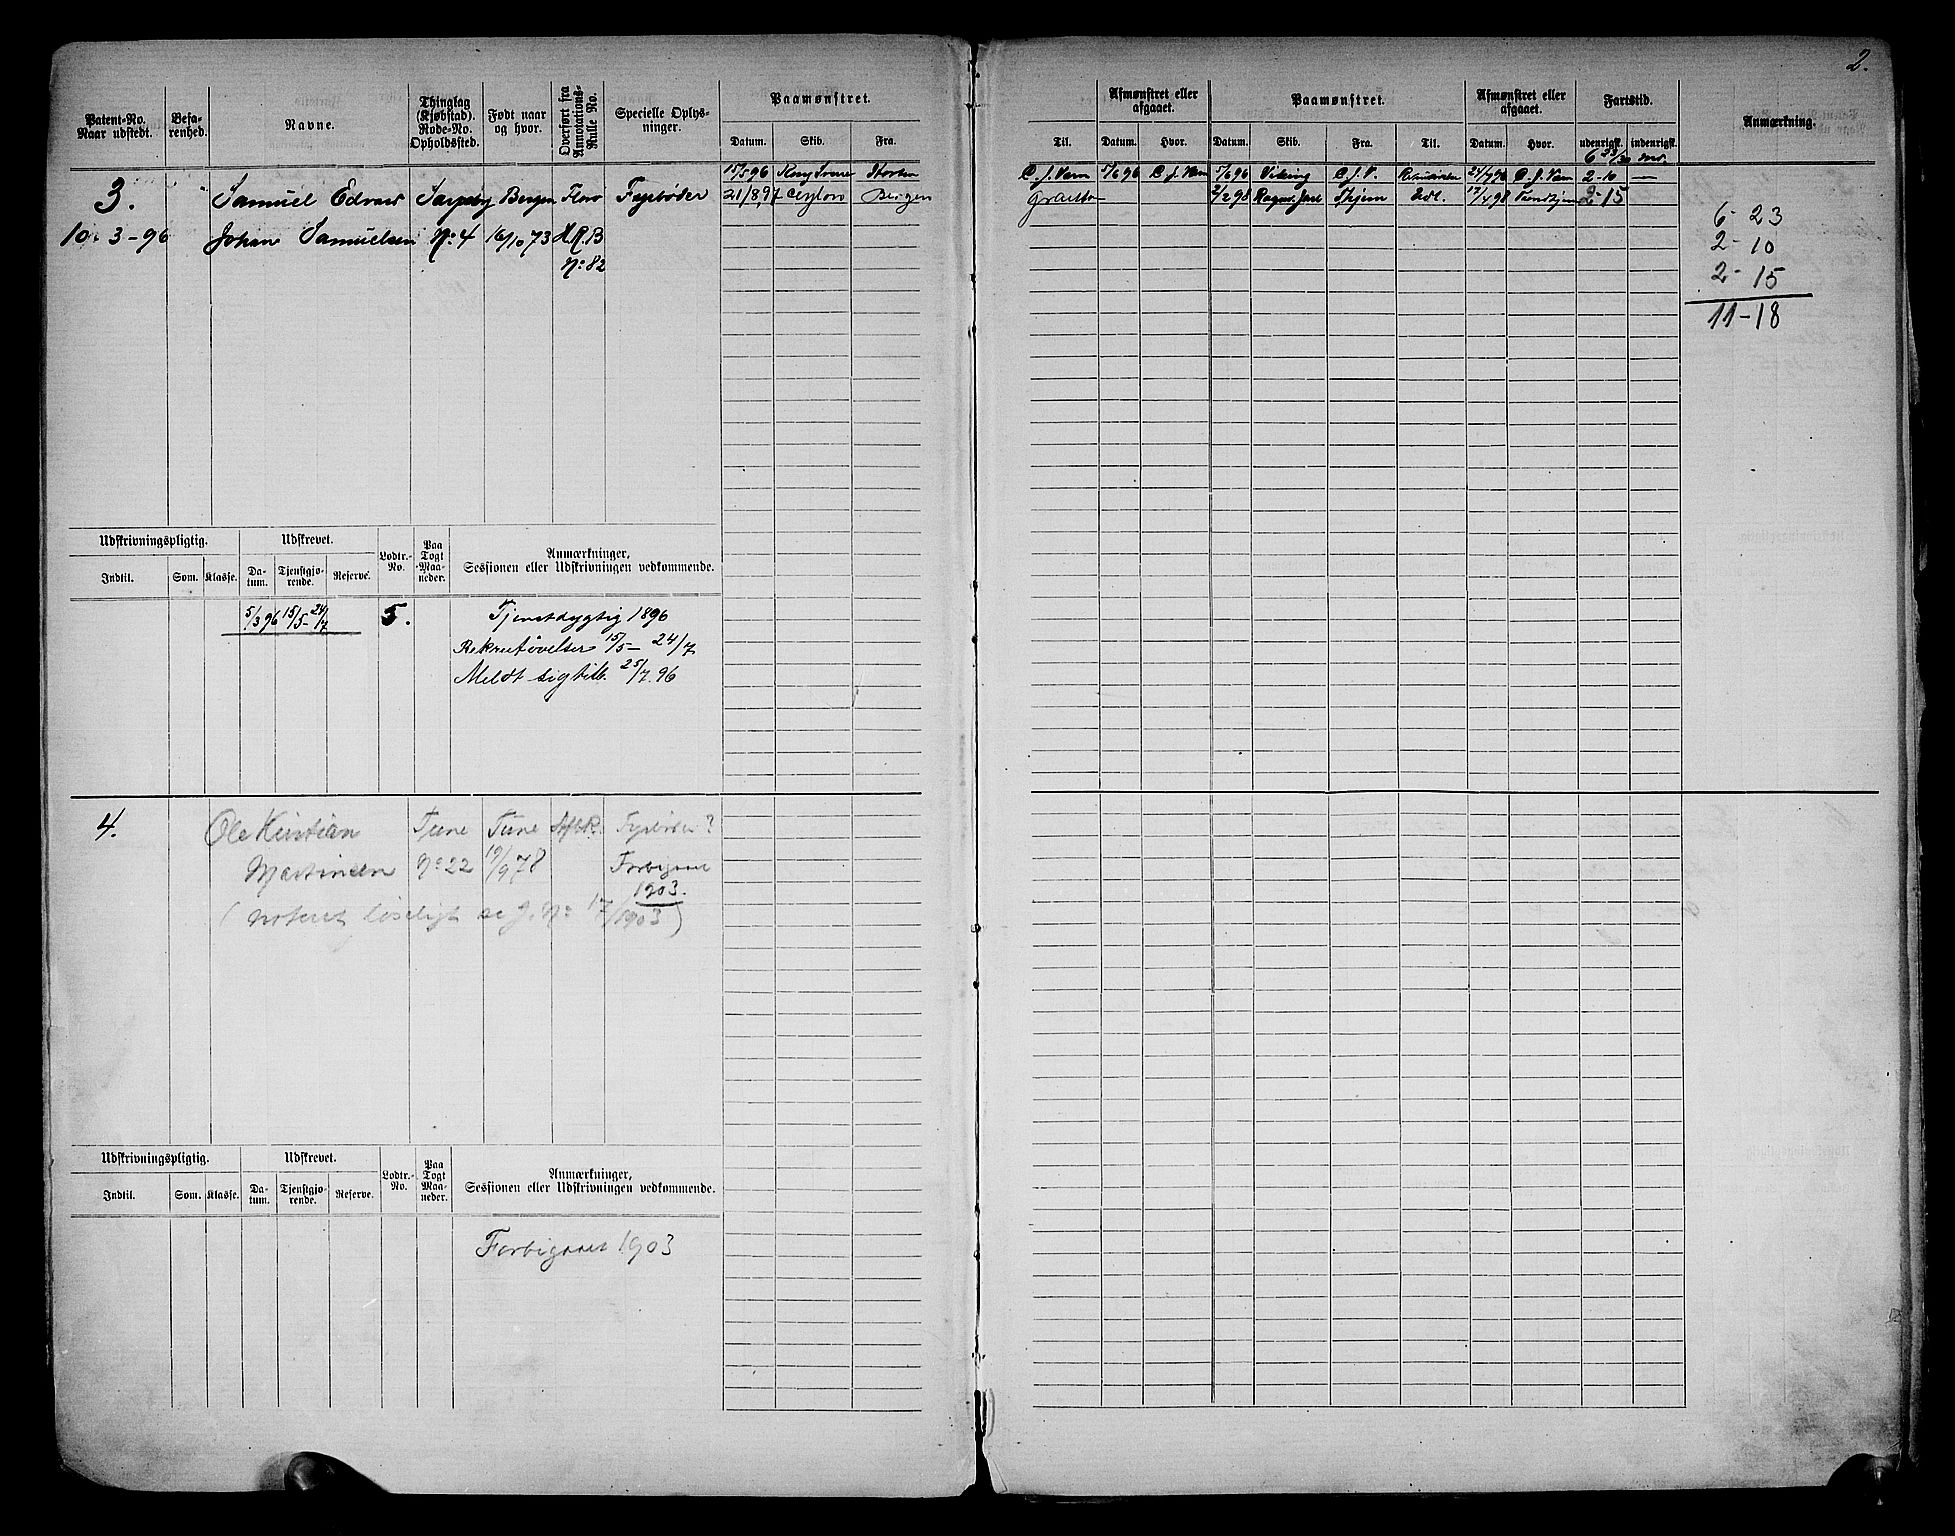 2.
Patent-No. Naar udstedt. Befarenhed. Navne. Thinglag (Kjøbstad). Rode-No. Opholdssted. Født naar og hvor. Overført fra Annotations-Rulle No. Specielle Oplysninger. Paamønstret. Datum. Skib. Fra.
Til. Afmønstret eller afgaaet. Datum. Hvor. Paamønstret. Datum. Skib. Fra. Til. Afmønstret eller afgaaet. Datum. Hvor. Fartstid. udenrigsk. indenrigsk. Anmærkning.
6 23/30 md.
15/5 96 Horten C. J. Vern 5/6 96 C. J. Vern 5/6 96 Viking C. J. V. 24/7 96 C. J. Vern 2-10 —
3. Samuel Edvard Sarpsby Bergen Fyrbøder 21/8 97 Ceylon Bergen 2/2 98 Ragnv. Jarl Thjem Udl. 17/4 98 Trondhjem 2-15
10-3-96 Johan Samuelsen No 4 16/10 73 A.R.B No 82
6-23
2-10
2-15
11-18
Udskrivningspligtig. Udskrevet. Lodtr.-No. Paa Togt Maaneder. Anmærkninger, Sessionen eller Udskrivningen vedkommende.
Indtil. Som. Klasse. Datum. Tjenstgjørende. Reserve.
5/3 96 15/5 - 24/7 5. Tjenstdygtig 1896
Rekrutøvelse 15/5 - 24/7
Meldt sig tilb. 25/7. 96
4. Ole Kristian Tune Tune Fyrbøder?
Martinsen No 22 19/9 78 Forbigaaet
1903.
(noteret løseligt se J. No 17/1903)
Udskrivningspligtig. Udskrevet. Lodtr.-No. Paa Togt Maaneder. Anmærkninger, Sessionen eller Udskrivningen vedkommende.
Indtil. Som. Klasse. Datum. Tjenstgjørende. Reserve.
Forbigaaet 1903